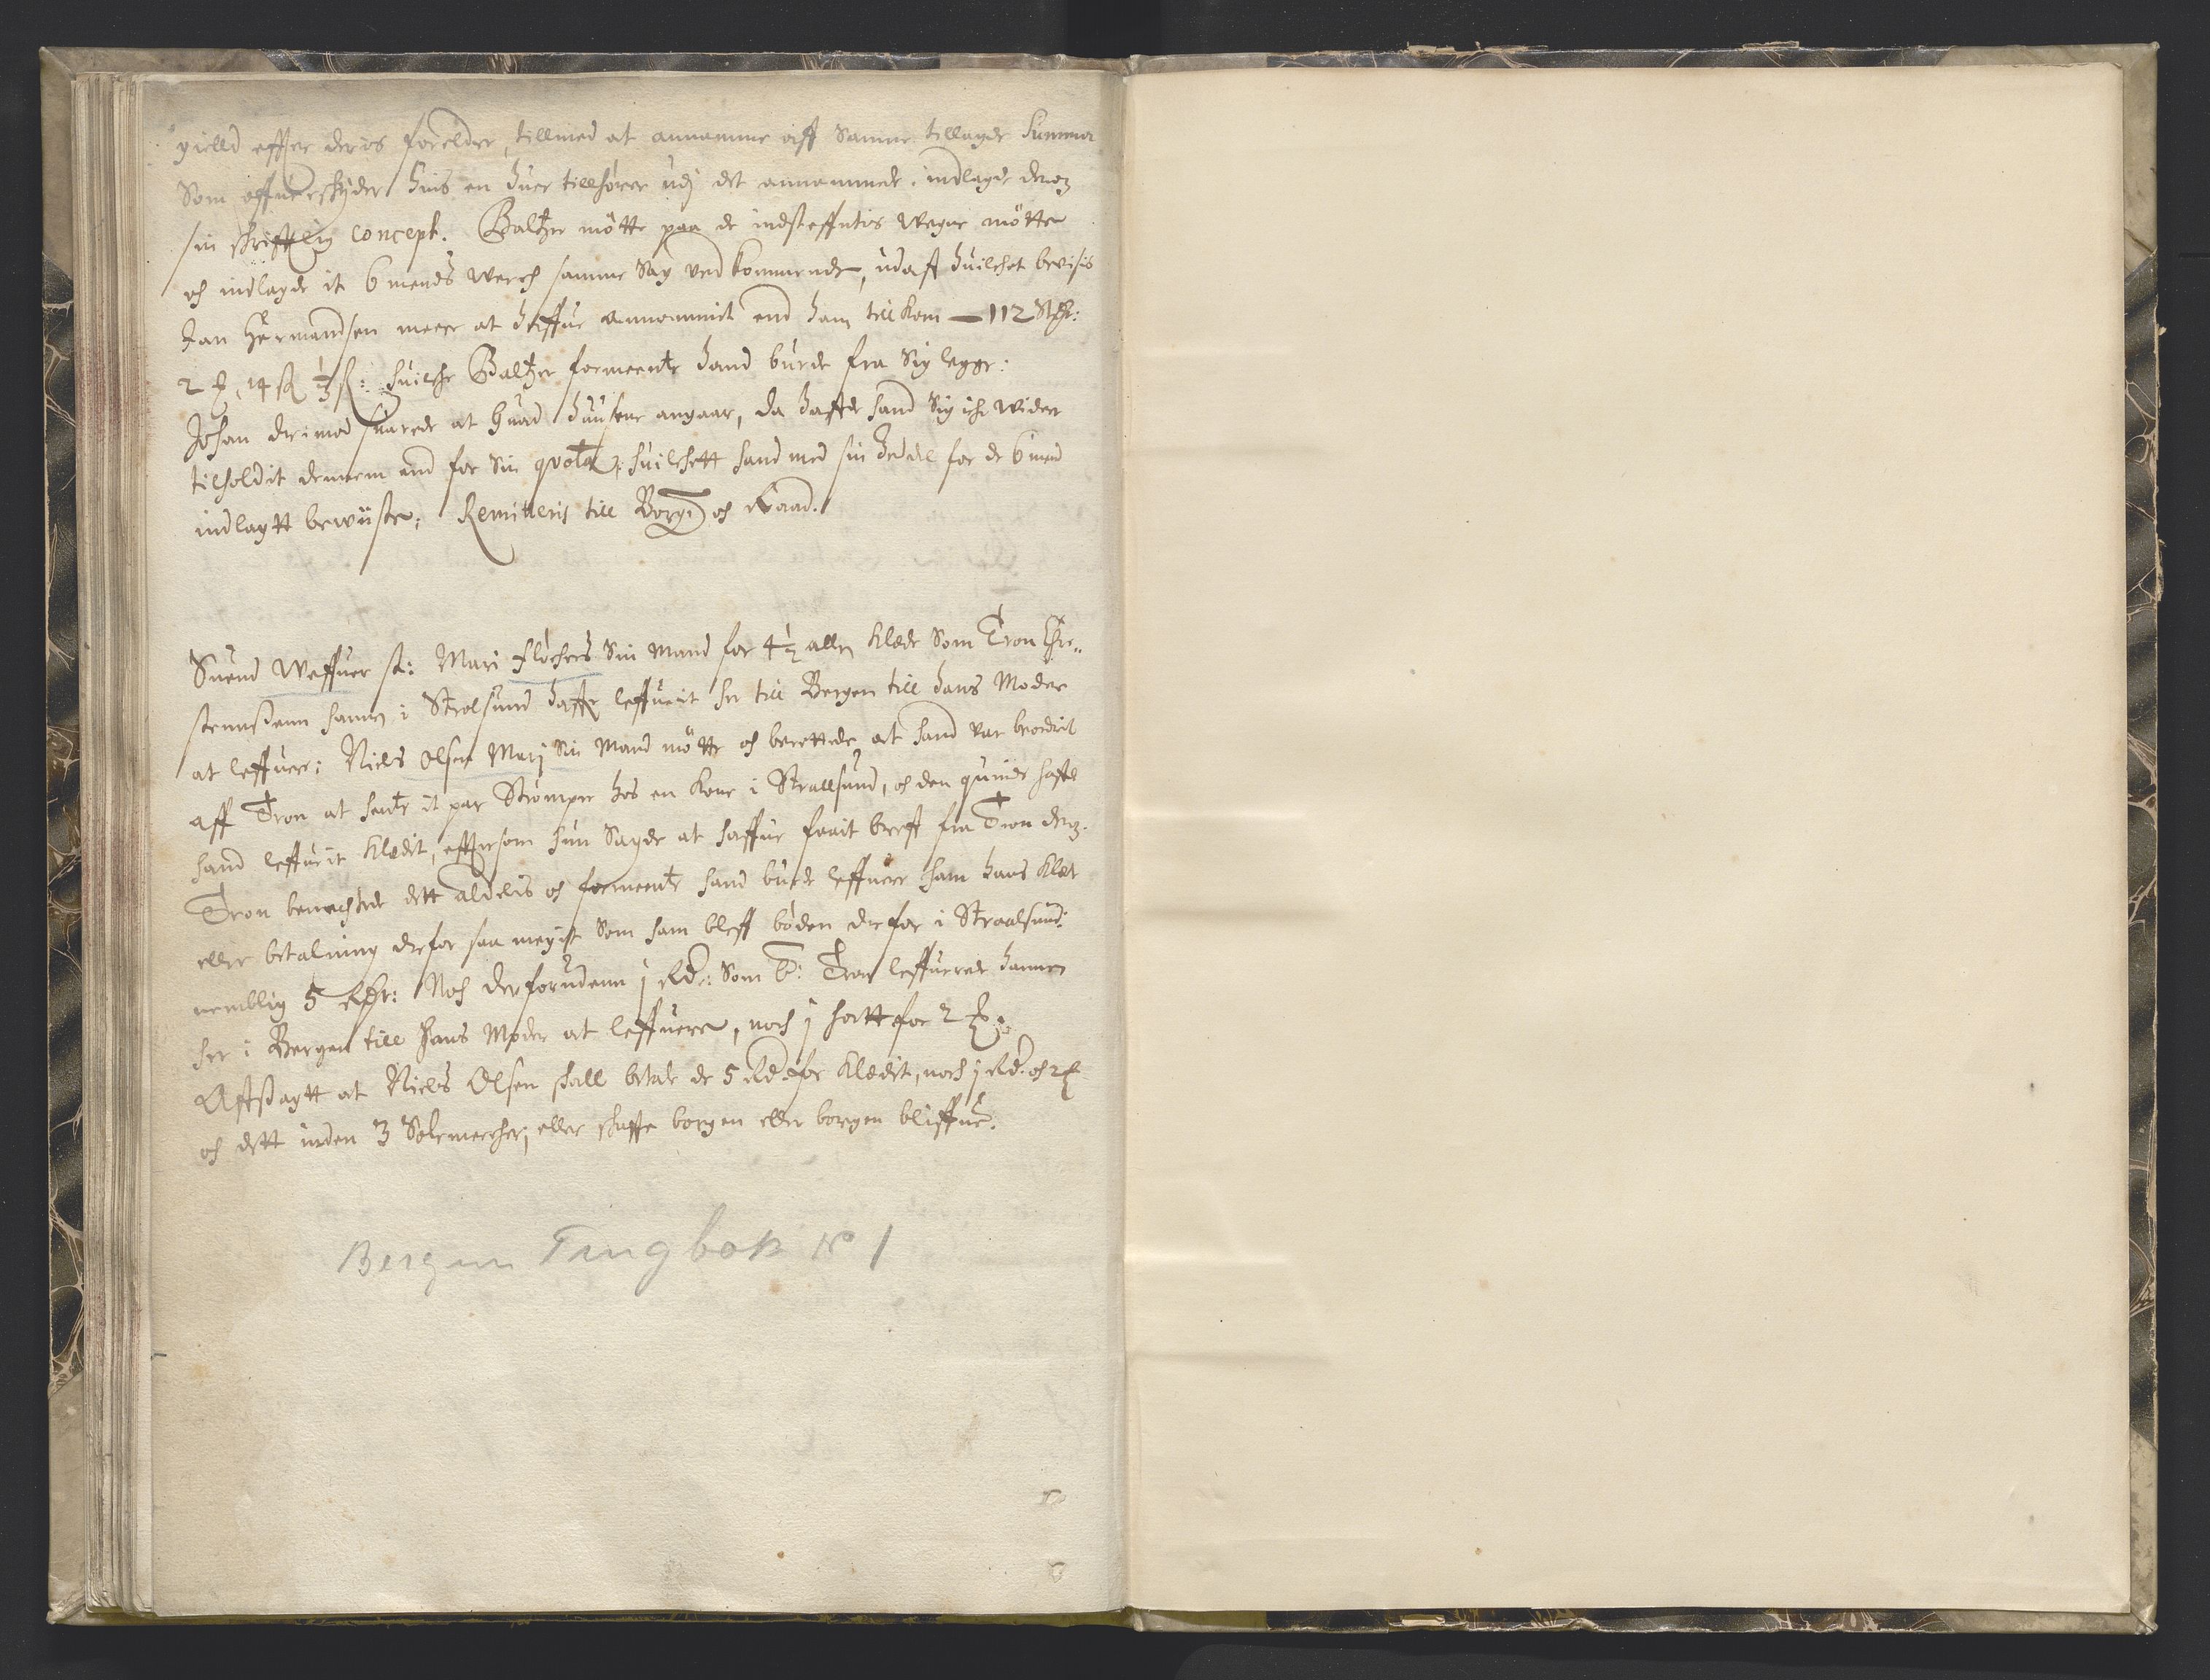 gielld effter deris forelder, tillmed at annamme aff Samme tillagde Summa
Som offuerskyder huis en huer tillhører udj det annammede. indlagde
sin skrifftlig concept. Baltzer mötte paa de indsteffntis wegne mötte
och indlagde it 6 mends werch samme Sag ved kommende, udaff huilchet bevisis
Jan Hermandsen meere at haffue annammit end ham till kom — 112 Rdr:
2 14 ß huilche Baltzer formeente hand burde fra Sig legge:
Johan derimod suarede at huad husene angaar, da haffde hand Sig iche wider
tilholdit dennem end for Sin qvota, huilchett hand med sin Zeddel for de 6 mend
indlagtt beviiste; Remitteris till Borgm och Raad.
Suend Weffuer st: Mari Fløchers Sin Mand for 4½ allen klæde Som Tron Chri=
stenssenn hannem i Strolsund haffr leffuerit her till Bergen till hans Moder
at leffuere: Niels Olsen Marj Sin Mand mötte och berettede at hand var beordrit
aff Tron at hente it par Strømper hos en kone i Strallsund, och den quinde haffde
hand leffuerit klædit, effttersom hun Sagde at haffue faait breff fra Tron
Tron benechtede dett aldelis och formeente hand burde leffuere ham hans klæde
eller betalning derfor saa megit Som ham bleff böden derfor i Straalsund:
nemblig 5 Rdr: Noch derforudenn j Rd: Som Tron leffuerede hannem
her i Bergen till hans Moder at leffuere, noch j hatt for 2
Affsagtt at Niels Olsen skall betale de 5 Rd for klædit, noch j Rd. och 2
och dett inden 3 Solemercher, eller skaffe borgen eller borgen bliffue.
Bergen Tingbok No 1